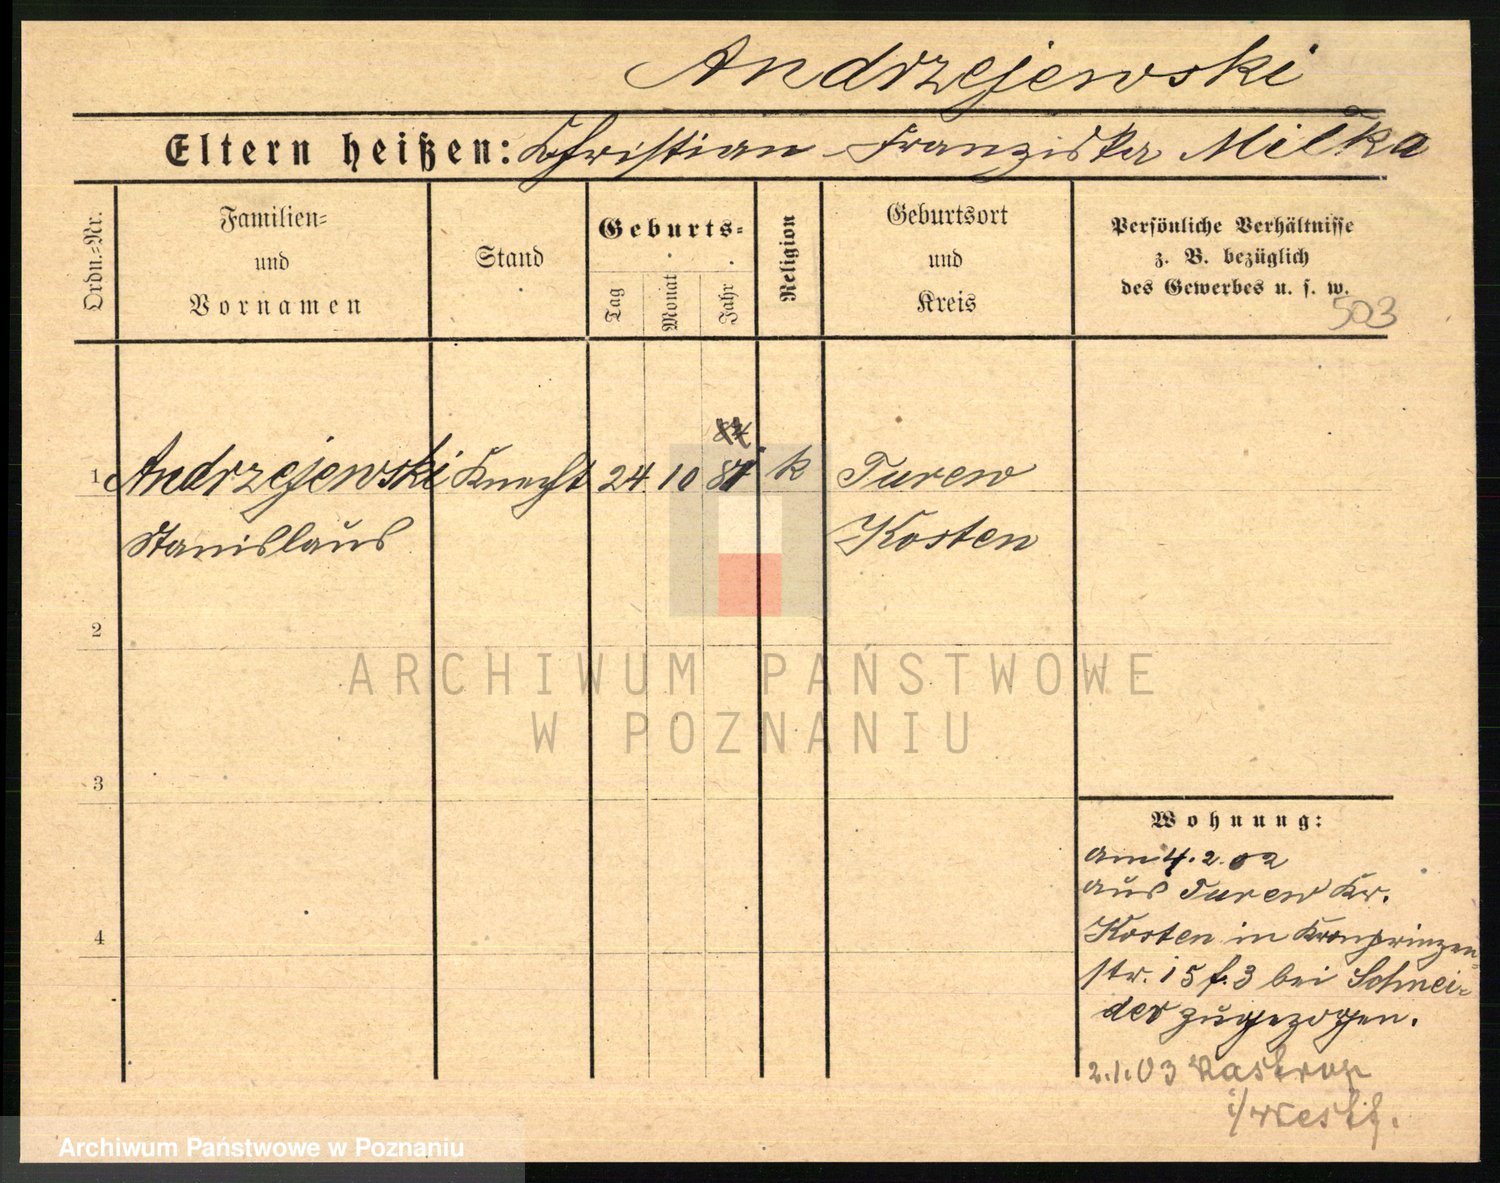 Andrzejewski
Eltern heißen: Christian - Franziska Milka
Ordn.=Nr.
Familien=
und
Vornamen
Stand
Geburts=
Tag
Monat
Jahr
Religion
Geburtsort
und
Kreis
Persönliche Verhältnisse
z. B. bezüglich
des Gewerbes u. s. w.
503
84
1 Andrzejewski Knecht 24 10 k Turew
Stanislaus Kosten
2
ARCHIWUM PAŃSTWOWE
W POZNANIU
3
Wohnung:
am 4.2.02
aus Turew Kr.
4
Kosten in Kronprinzen=
str. 15 f. 3 bei Schnei=
der zugezogen.
2.1.03 Rastrop
i/Westf.
Archiwum Państwowe w Poznaniu